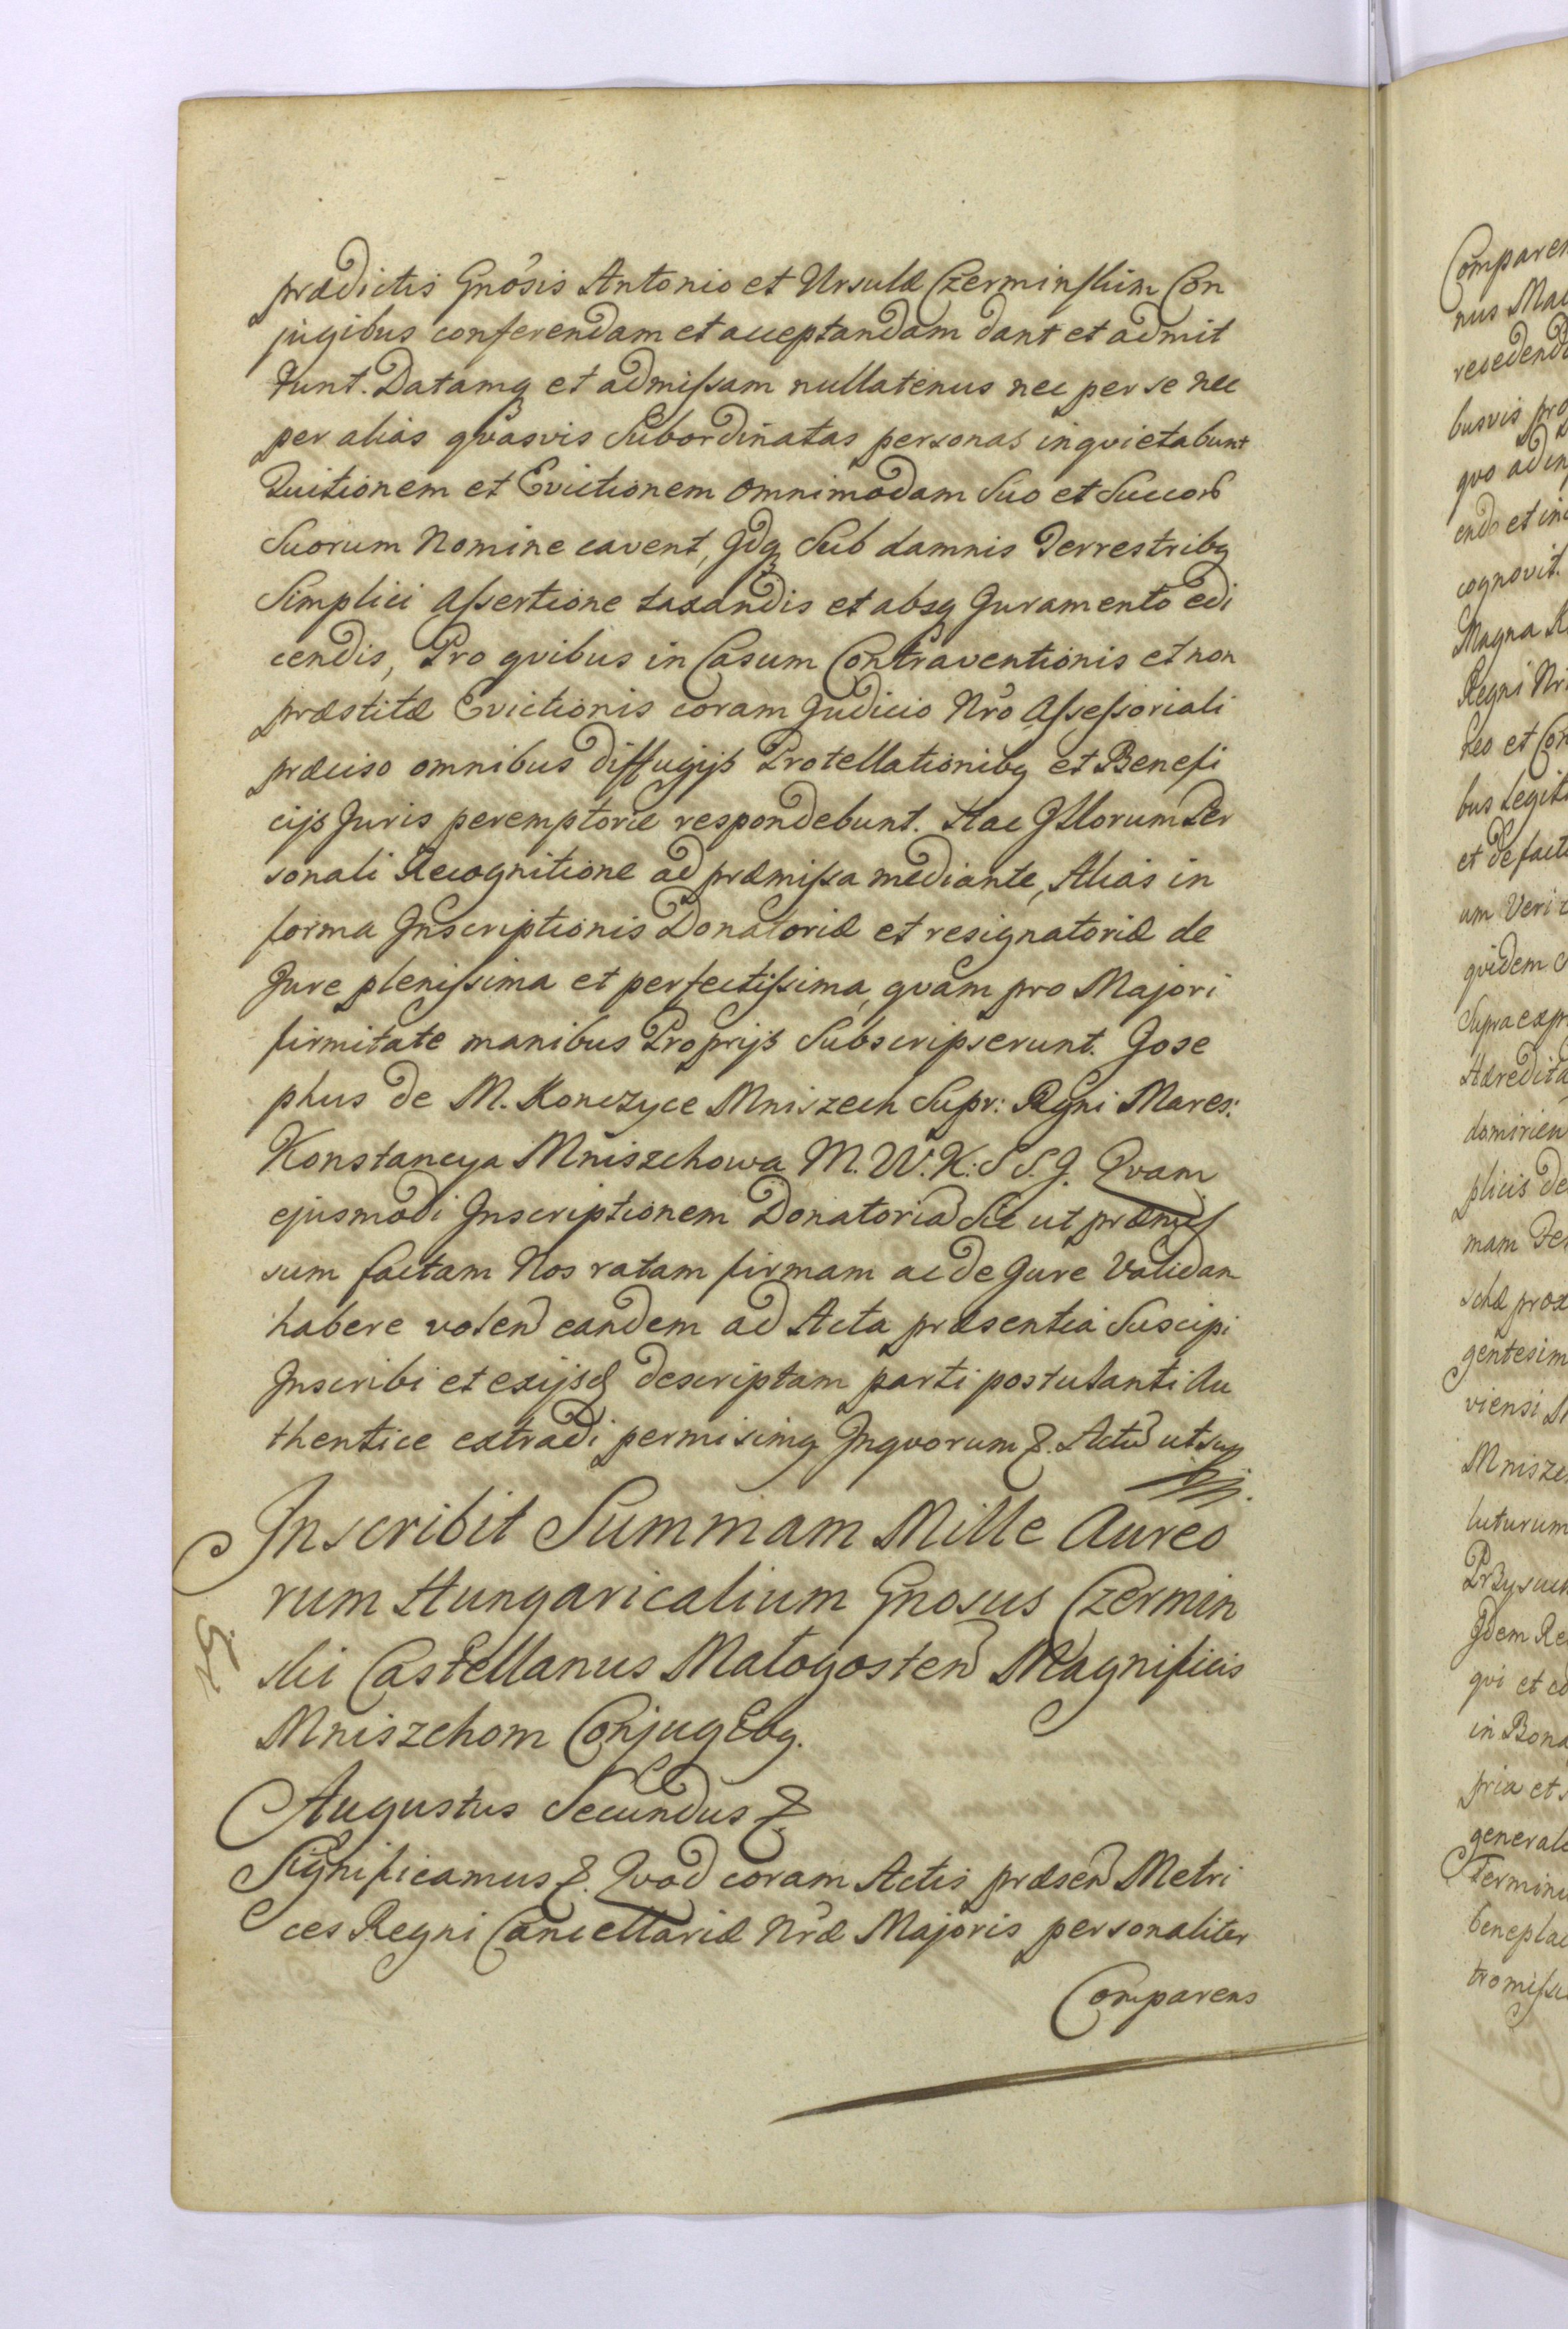 prædictis Gnosis Antonio et Ursulæ Czerminskim Con
jugibus conferendam et acceptandam dant et admit
tunt. Datamq et admiſsam nullatenus nec per se nec
per alias qvasvis Subordinatas personas inqvietabunt
Tuitionem et Evictionem omnimodam Suo et Succorb
Suorum Nomine cavent, Jdq Sub damnis Terrestribq
Simplici Aſsertione taxandis et absq Juramento edi
cendis, Pro qvibus in Casum Contraventionis et non
præstitæ Evictionis coram Judicio Nro Aſseſsoriali
præciso omnibus diffugijs Protellationibq et Benefi
cijs Juris peremptorie respondebunt. Hac Jllorum Per
sonali Recognitione ad præmiſsa mediante, Alias in
forma Jnscriptionis Donatoriæ et resignatoriæ de
Jure pleniſsima et perfectiſsima, qvam pro Majori
firmitate manibus Proprijs Subscripserunt. Jose
phus de M. Konczyce Mniszech Supr: Regni Mares:
Konstancya Mniszchowa M. W. K: S S. J. Qvam
ejusmodi Jnscriptionem Donatoria Sic ut præmis
sum factam Nos ratam firmam ac de Jure Validam
habere volen eandem ad Acta præsentia Suscipi
Jnscribi et exijsd descriptam parti postulanti Au
thentice extradi permisimq Jnqvorum &. Actu ut sup
Jnscribit Summam Mille Aureo
rum Hungaricalium Gnosus Czermin
ski Castellanus Malogosten Magnificis
Mniszchom Conjugibq.
Augustus Secundus &.
Significamus &. Qvod coram Actis præsen Metri
ces Regni Cancellariæ Nræ Majoris personaliter
Comparens
Comparen
nus Mal
recedendo
busvis pro
qvo ad in
endo et in
cognovit.
Magna
Regni Nri
leo et Con
bus Legit
et de facto
um Veri
qvidem
Supra expr
Hæredita
domirien
plicis de
mam
schæ prox
gentesim
viensi
Mnisze
luturum
Przysuc
Jdem Re
qvi et
in Bona
pria et
generale
Termin
beneplac
tromiſsi